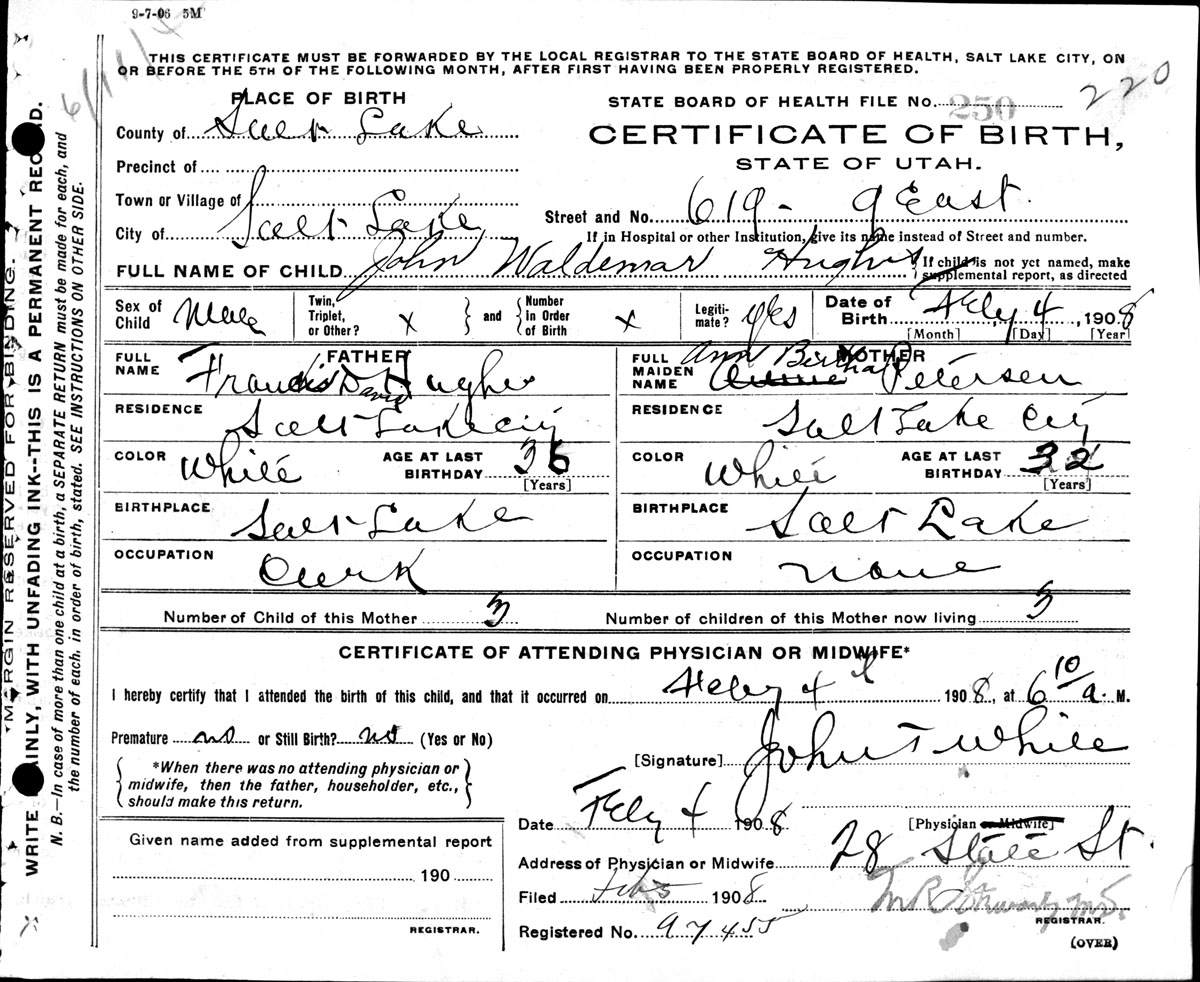 9-7-06 5M
THIS CERTIFICATE MUST BE FORWARDED BY THE LOCAL REGISTRAR TO THE STATE BOARD OF HEALTH, SALT LAKE CITY, ON
OR BEFORE THE 5TH OF THE FOLLOWING MONTH, AFTER FIRST HAVING BEEN PROPERLY REGISTERED.
PLACE OF BIRTH
County of Salt Lake
Precinct of
Town or Village of
City of Salt Lake
STATE BOARD OF HEALTH FILE No. 250
220
CERTIFICATE OF BIRTH,
STATE OF UTAH.
Street and No. 619 - 9 East
If in Hospital or other Institution, give its name instead of Street and number.
FULL NAME OF CHILD John Waldemar Hughes
If child is not yet named, make
supplemental report, as directed
Sex of Child Male
Twin, Triplet, or Other? x
and
Number in Order of Birth x
Legitimate? Yes
Date of Birth Feby 4, 1908
[Month] [Day] [Year]
FATHER
FULL NAME Francis David Hughes
RESIDENCE Salt Lake City
COLOR White AGE AT LAST BIRTHDAY 36
[Years]
BIRTHPLACE Salt Lake
OCCUPATION Clerk
MOTHER
FULL MAIDEN NAME Ann Bertha Petersen
RESIDENCE Salt Lake City
COLOR White AGE AT LAST BIRTHDAY 32
[Years]
BIRTHPLACE Salt Lake
OCCUPATION None
Number of Child of this Mother 3
Number of children of this Mother now living 3
CERTIFICATE OF ATTENDING PHYSICIAN OR MIDWIFE*
I hereby certify that I attended the birth of this child, and that it occurred on Feby 4th 1908, at 6 10 a. M.
Premature no or Still Birth? no (Yes or No)
*When there was no attending physician or
midwife, then the father, householder, etc.,
should make this return.
[Signature] John T White
Date Feby 4 1908
[Physician or Midwife]
Address of Physician or Midwife 28 State St.
Given name added from supplemental report
190
REGISTRAR.
Filed Feb 5 1908
REGISTRAR.
Registered No. 97455
(OVER)
MARGIN RESERVED FOR BINDING.
WRITE PLAINLY, WITH UNFADING INK--THIS IS A PERMANENT RECORD.
N. B.—In case of more than one child at a birth, a SEPARATE RETURN must be made for each, and
the number of each, in order of birth, stated. SEE INSTRUCTIONS ON OTHER SIDE.